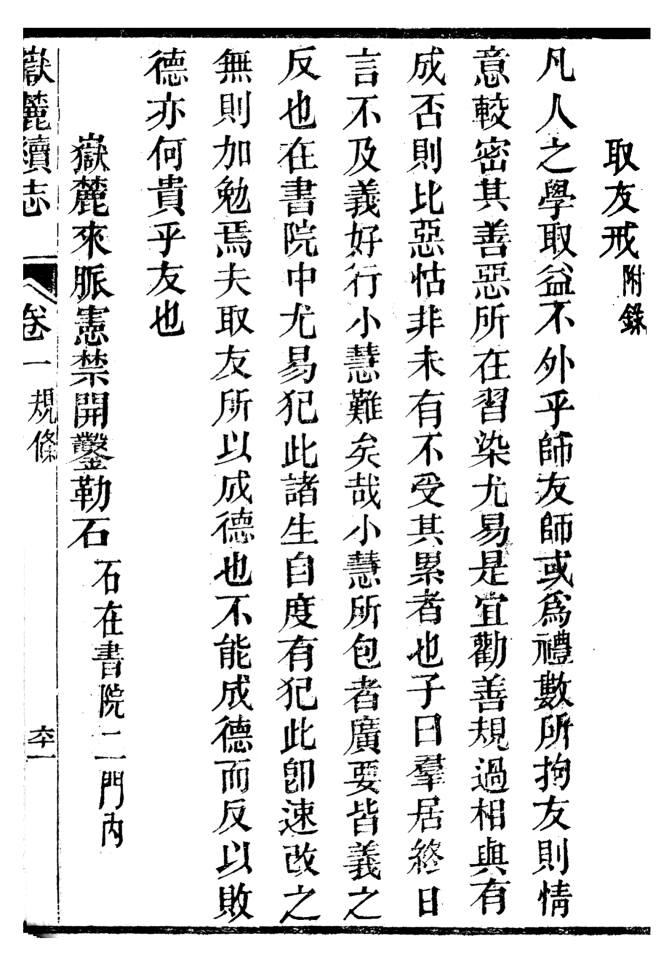 取友戒附錄
凡人之學取益不外乎師友師或爲禮數所拘友則情
意較密其善惡所在習染尤易是宜勸善規過相與有
成否則比惡怙非未有不受其累者也子曰羣居終日
言不及義好行小慧難矣哉小慧所包者廣要皆義之
反也在書院中尤易犯此諸生自度有犯此卽速改之
無則加勉焉夫取友所以成德也不能成德而反以敗
德亦何貴乎友也
嶽麓來脈憲禁開鑿勒石石在書院二門內
嶽麓續志
卷一規條
六一